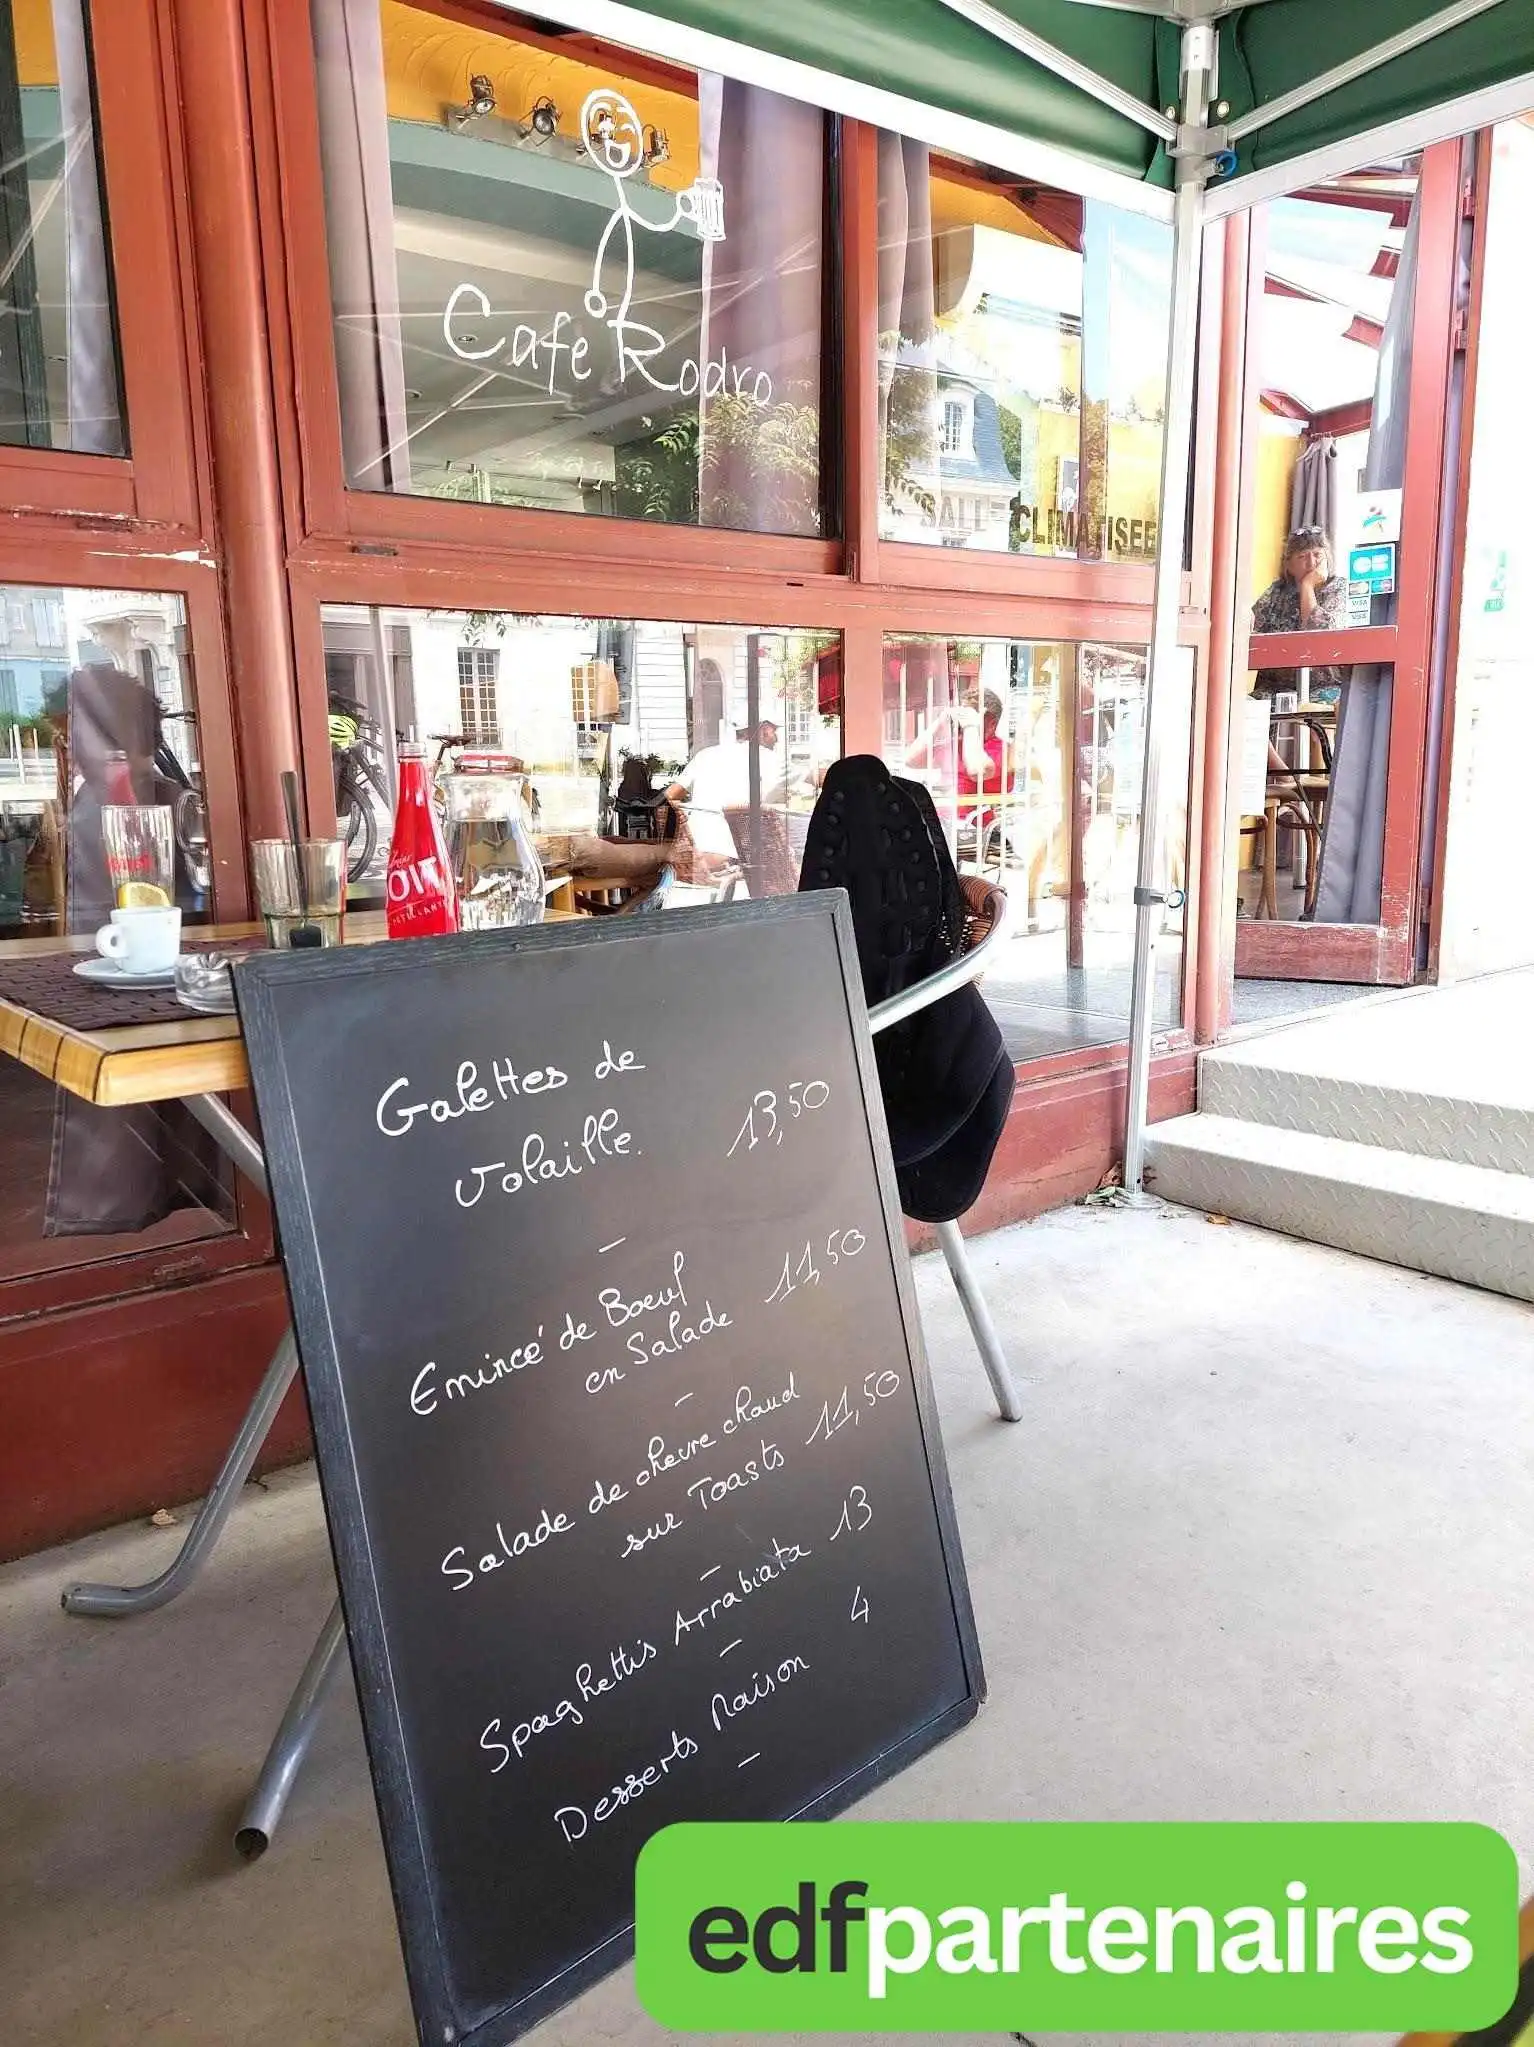 Cafe Rodro
SALLE CLIMATISEE
VISA
VISA
Galettes de
volaille. 13,50
-
Emincé de Boeuf
en Salade 11,50
-
Salade de chevre chaud
sur Toasts 11,50
-
Spaghettis Arrabiata 13
-
Desserts Maison 4
-
edfpartenaires